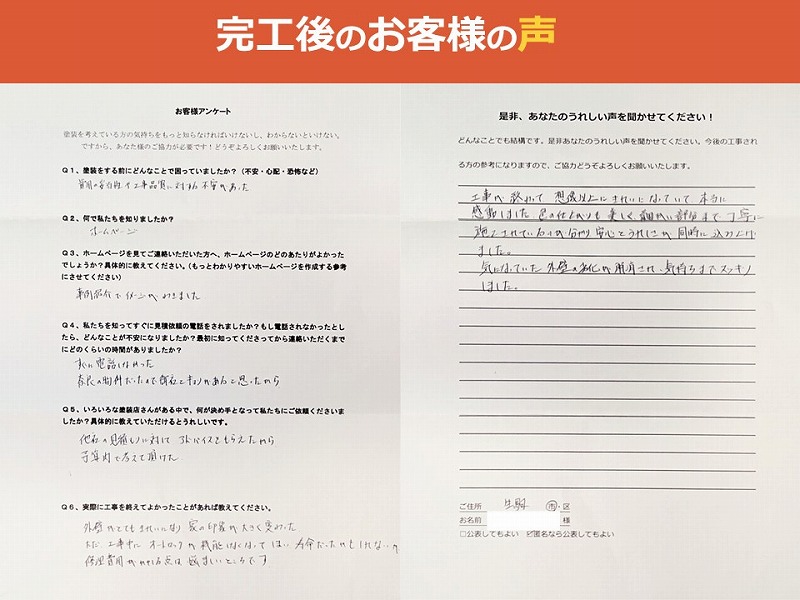 完工後のお客様の声
お客様アンケート
塗装を考えている方の気持ちをもっと知らなければいけないし、わからないといけない。
ですから、あなた様のご協力が必要です！どうぞよろしくお願いいたします。
Q1、塗装をする前にどんなことで困っていましたか？（不安・心配・恐怖など）
費用の妥当性や工事品質に対する不安があった
Q2、何で私たちを知りましたか？
ホームページ
Q3、ホームページを見てご連絡いただいた方へ、ホームページのどのあたりがよかった
でしょうか？具体的に教えてください。（もっとわかりやすいホームページを作成する参考
にさせてください）
事例紹介でイメージができました
Q4、私たちを知ってすぐに見積依頼の電話をされましたか？もし電話されなかったとし
たら、どんなことが不安になりましたか？最初に知ってくださってから連絡いただくまで
にどのくらいの時間がありましたか？
すぐに電話しなかった
奈良の物件だったので御社とキョリがあると思ったから
Q5、いろいろな塗装店さんがある中で、何が決め手となって私たちにご依頼くださいま
したか？具体的に教えていただけるとうれしいです。
他社の見積もりに対して アドバイスをもらえたから
予算内で考えて頂けた
Q6、実際に工事を終えてよかったことがあれば教えてください。
外壁がとてもきれいになり 家の印象が大きく変わった
ただ 工事中に オートロックが機能しなくなってしまい 寿命だったかもしれないが
修理費用がかかる点は 悩ましいところです
是非、あなたのうれしい声を聞かせてください！
どんなことでも結構です。是非あなたのうれしい声を聞かせてください。今後の工事され
る方の参考になりますので、ご協力どうぞよろしくお願いいたします。
工事が終わって 想像以上にきれいになっていて 本当に
感動しました 色の仕上がりも美しく 細かい部分まで丁寧に
施工されているのが分かり 安心とうれしさが同時に込み上げ
ました。
気になっていた 外壁の劣化が解消され、気持ちまでスッキリ
しました。
ご住所 生駒 市・区
お名前 様
□公表してもよい ☑匿名なら公表してもよい